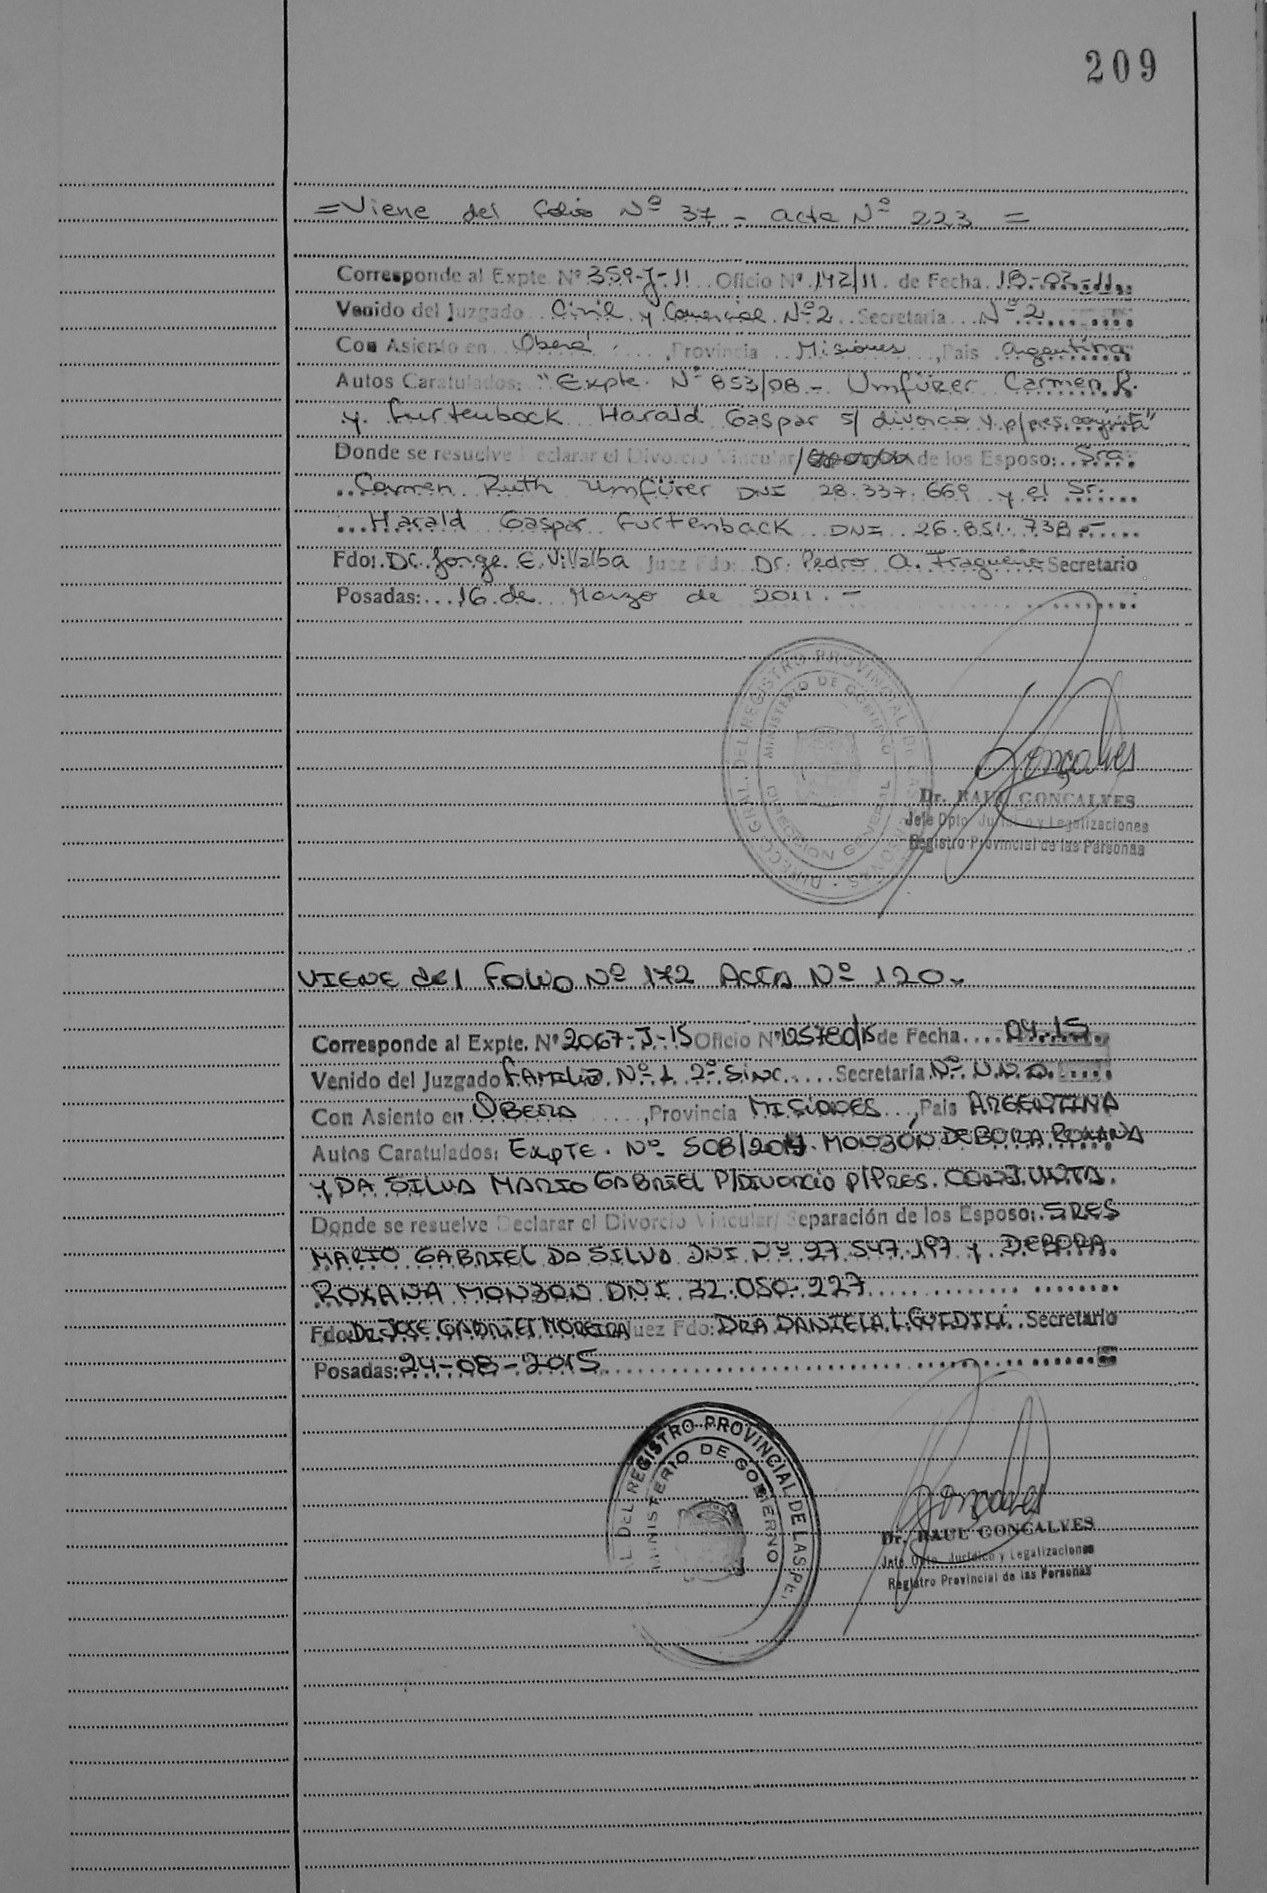 209
= Viene del folio Nº 37 - acta Nº 223 =
Corresponde al Expte. Nº 359-J-11 Oficio Nº 142/11 de Fecha
Venido del Juzgado Civil y Comercial Nº 2 Secretaría Nº 2
Con Asiento en Oberá, Provincia Misiones, Pais Argentina
Autos Caratulados: "Expte. Nº 853/08 - Umfürer Carmen R.
y Furtenback Harald Gaspar s/ divorcio v. p/pres. conjunta"
Donde se resuelve Declarar el Divorcio Vincular/ de los Esposo: Sra.
Carmen Ruth Umfürer DNI 28.337.669 y el Sr.
Harald Gaspar Furtenback DNI 26.851.738.-
Fdo: Dr. Jorge E. Villalba Juez Fdo: Dr. Pedro A. Fragueiro Secretario
Posadas: 16 de Marzo de 2011.-
DIRECC. GRAL. DEL REGISTRO PROVINCIAL DE LAS PERSONAS
MINISTERIO DE GOBIERNO
Gonçalves
Dr. RAUL GONÇALVES
Jefe Dpto. Jurídico y Legalizaciones
Registro Provincial de las Personas
VIENE del FOLIO Nº 172 ACTA Nº 120.-
Corresponde al Expte. Nº 2067-J-15 Oficio Nº de Fecha 04-15
Venido del Juzgado FAMILIA Nº 1 2º Sinc. Secretaría Nº U.N.A.
Con Asiento en OBERA, Provincia MISIONES, Pais ARGENTINA
Autos Caratulados: EXPTE. Nº 508/2014 MONZÓN DEBORA ROXANA
Y DA SILVA MARIO GABRIEL P/DIVORCIO P/PRES. CONJUNTA.
Donde se resuelve Declarar el Divorcio Vincular/ Separación de los Esposo: SRES
MARIO GABRIEL DA SILVA DNI Nº 27.547.197 Y DEBORA
ROXANA MONZON DNI 32.050.227
Fdo: Dr. JOSE GABRIEL MOREIRA Juez Fdo: DRA DANIELA L. Secretario
Posadas: 24-08-2015
DEL REGISTRO PROVINCIAL DE LAS PE
MINISTERIO DE GOBIERNO
Gonçalves
Dr. RAUL GONCALVES
Jefe Dpto. Jurídico y Legalizaciones
Registro Provincial de las Personas